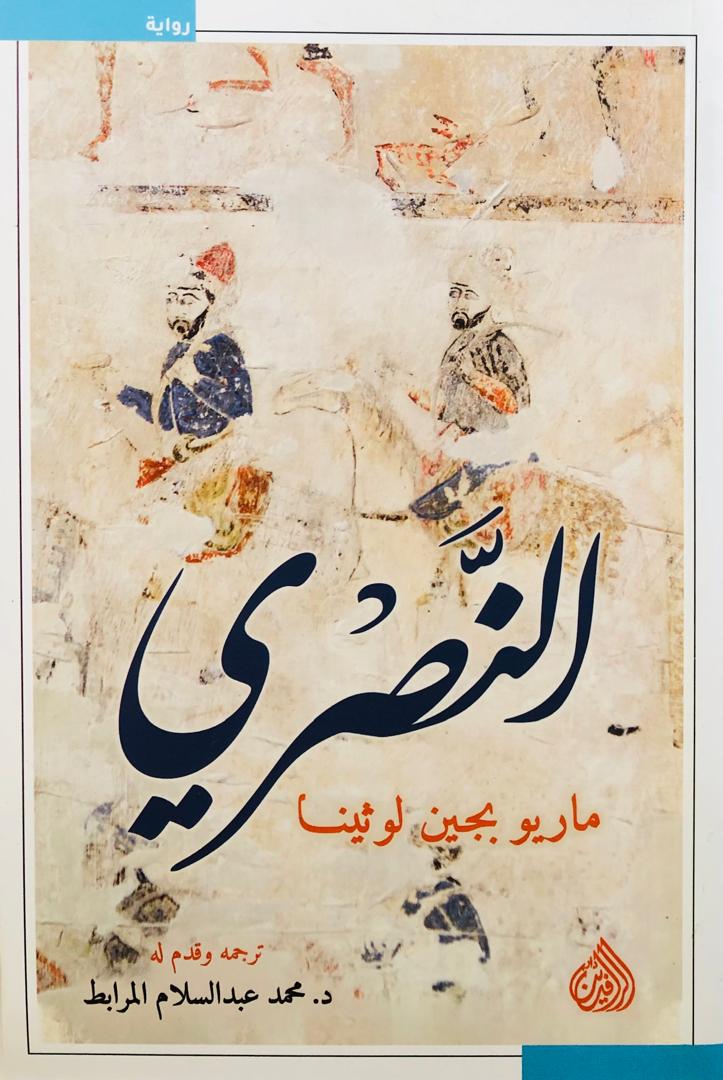 رواية
النَّصْرِي
ماريو بجين لوثينا
ترجمه وقدم له
د. محمد عبدالسلام المرابط
دار الرافدين